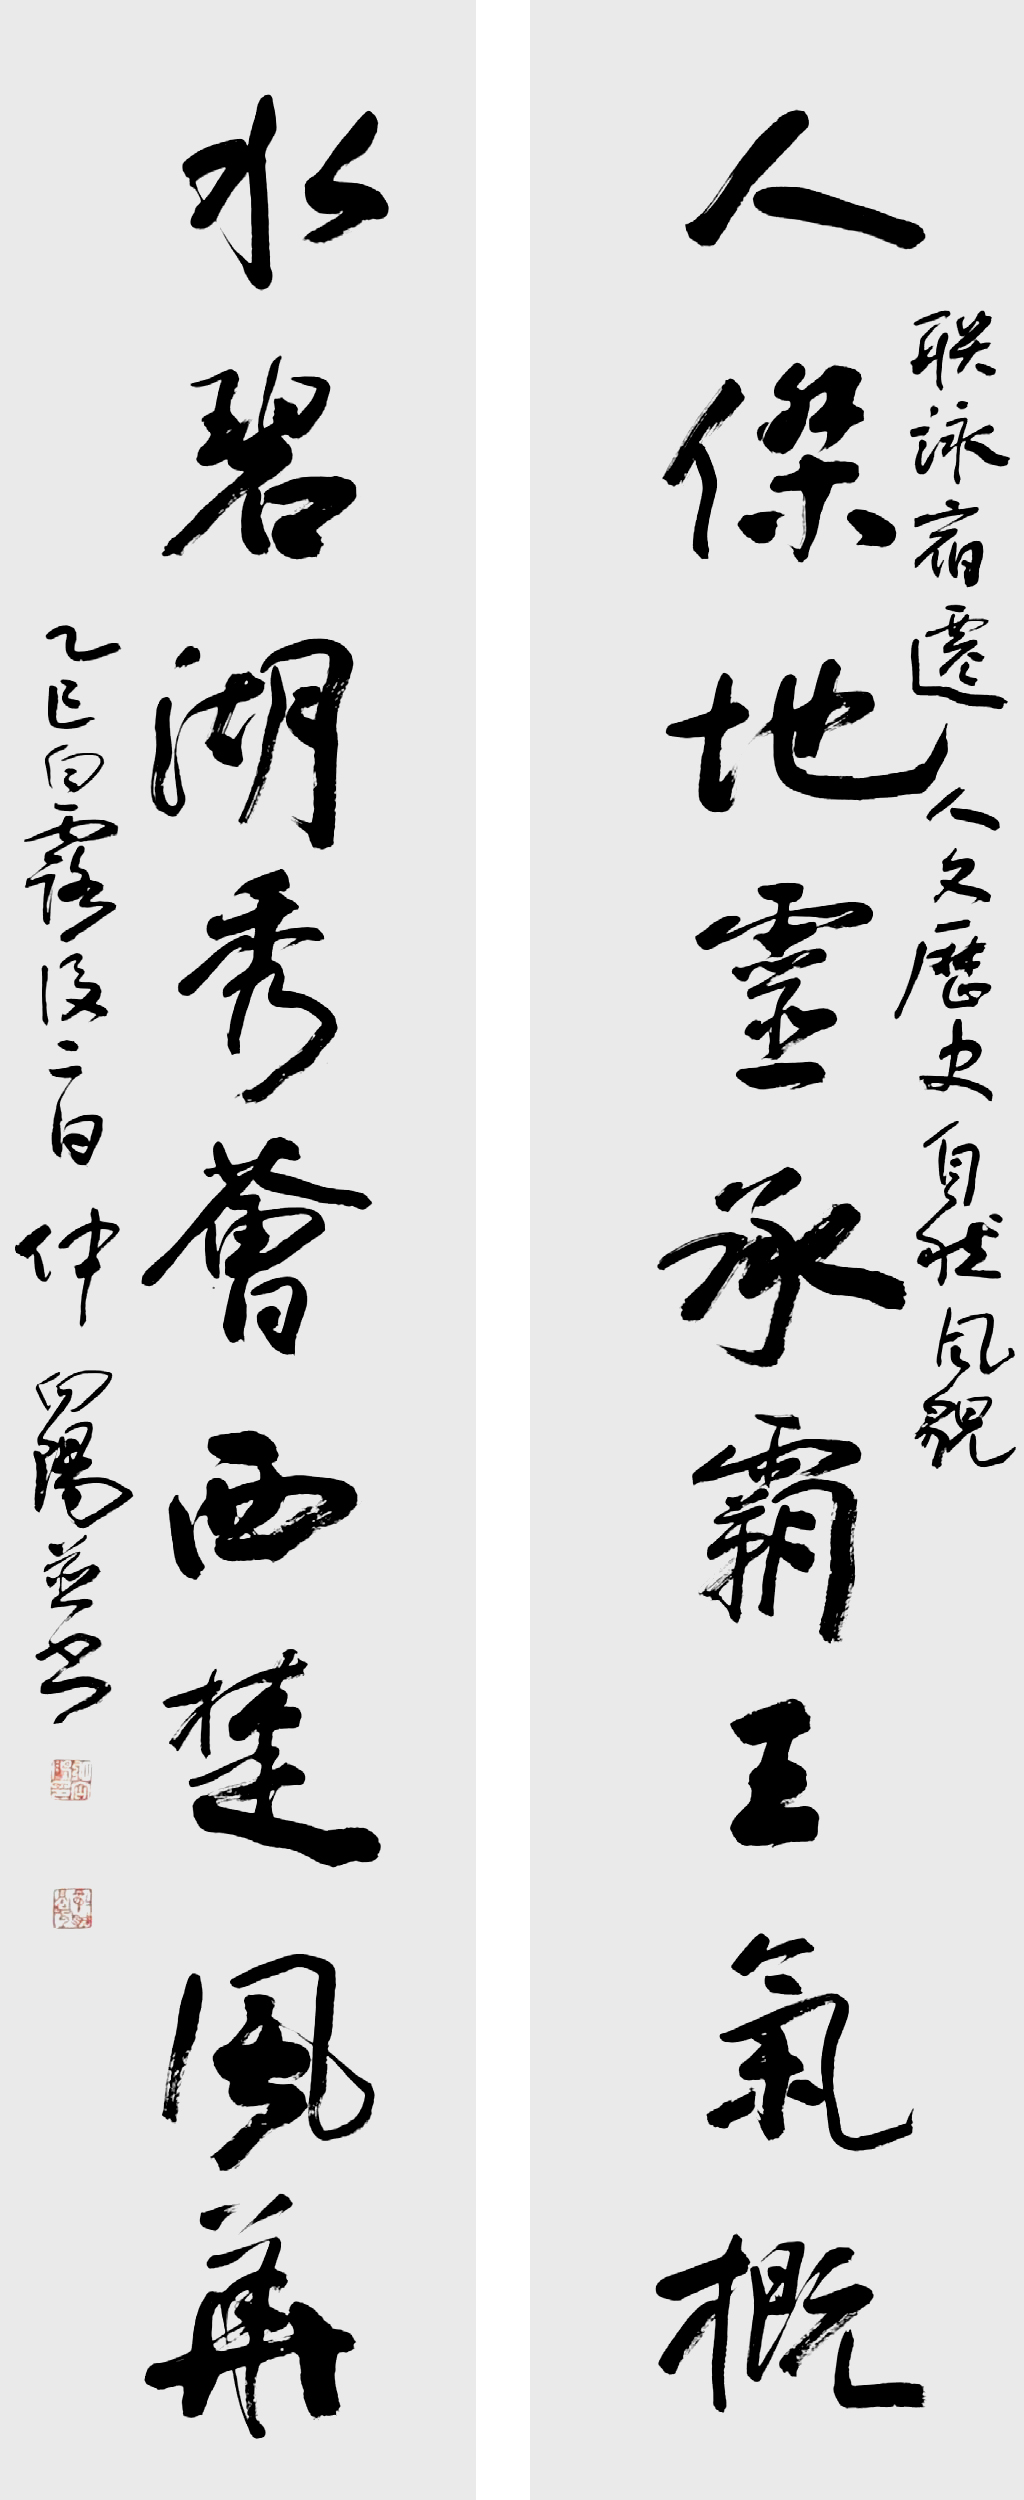 聯詠霸靈人文歷史自然風貌
人傑地靈承霸王氣概
水碧湖秀蘊西楚風華
乙巳白露後二百